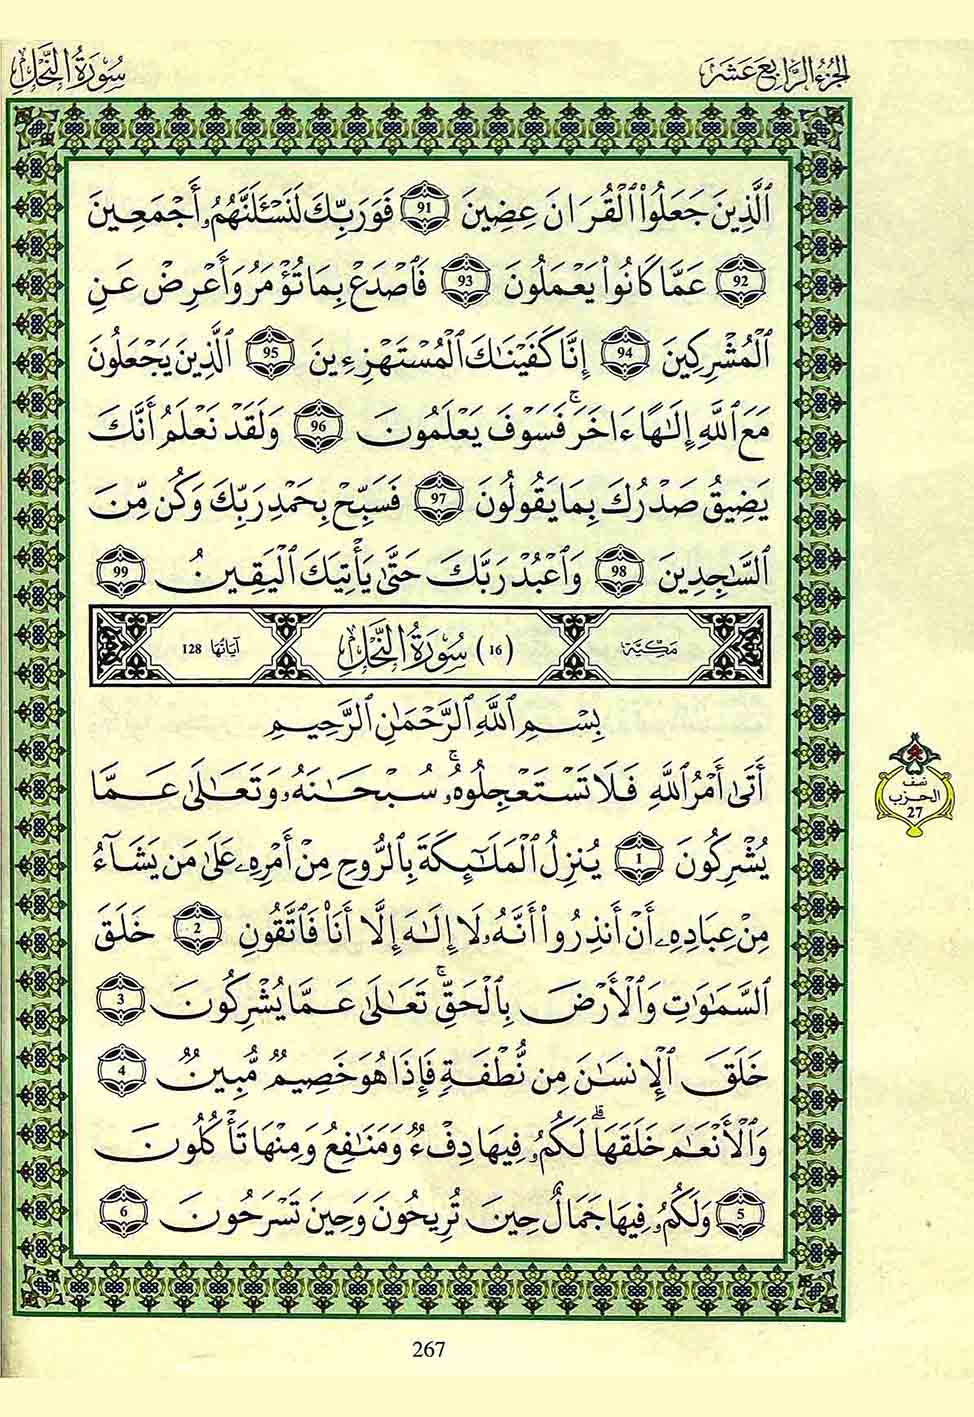 الجزء الرابع عشر
سورة النحل
ٱلَّذِينَ جَعَلُوا۟ ٱلْقُرَانَ عِضِينَ 91 فَوَرَبِّكَ لَنَسْـَٔلَنَّهُمُۥٓ أَجْمَعِينَ
92 عَمَّا كَانُوا۟ يَعْمَلُونَ 93 فَٱصْدَعْ بِمَا تُؤْمَرُ وَأَعْرِضْ عَنِ
ٱلْمُشْرِكِينَ 94 إِنَّا كَفَيْنَٰكَ ٱلْمُسْتَهْزِءِينَ 95 ٱلَّذِينَ يَجْعَلُونَ
مَعَ ٱللَّهِ إِلَٰهًا ءَاخَرَ ۚ فَسَوْفَ يَعْلَمُونَ 96 وَلَقَدْ نَعْلَمُ أَنَّكَ
يَضِيقُ صَدْرُكَ بِمَا يَقُولُونَ 97 فَسَبِّحْ بِحَمْدِ رَبِّكَ وَكُن مِّنَ
ٱلسَّٰجِدِينَ 98 وَٱعْبُدْ رَبَّكَ حَتَّىٰ يَأْتِيَكَ ٱلْيَقِينُ 99
مكية (16) سورة النحل آياتها 128
بِسْمِ ٱللَّهِ ٱلرَّحْمَٰنِ ٱلرَّحِيمِ
أَتَىٰٓ أَمْرُ ٱللَّهِ فَلَا تَسْتَعْجِلُوهُۥ ۚ سُبْحَٰنَهُۥ وَتَعَٰلَىٰ عَمَّا
نصف
الحزب
27
يُشْرِكُونَ 1 يُنزِلُ ٱلْمَلَٰٓئِكَةَ بِٱلرُّوحِ مِنْ أَمْرِهِۦ عَلَىٰ مَن يَشَآءُ
مِنْ عِبَادِهِۦٓ أَنْ أَنذِرُوٓا۟ أَنَّهُۥ لَآ إِلَٰهَ إِلَّآ أَنَا۠ فَٱتَّقُونِ 2 خَلَقَ
ٱلسَّمَٰوَٰتِ وَٱلْأَرْضَ بِٱلْحَقِّ ۚ تَعَٰلَىٰ عَمَّا يُشْرِكُونَ 3
خَلَقَ ٱلْإِنسَٰنَ مِن نُّطْفَةٍ فَإِذَا هُوَ خَصِيمٌ مُّبِينٌ 4
وَٱلْأَنْعَٰمَ خَلَقَهَا ۗ لَكُمُۥ فِيهَا دِفْءٌ وَمَنَٰفِعُ وَمِنْهَا تَأْكُلُونَ
5 وَلَكُمُۥ فِيهَا جَمَالٌ حِينَ تُرِيحُونَ وَحِينَ تَسْرَحُونَ 6
267